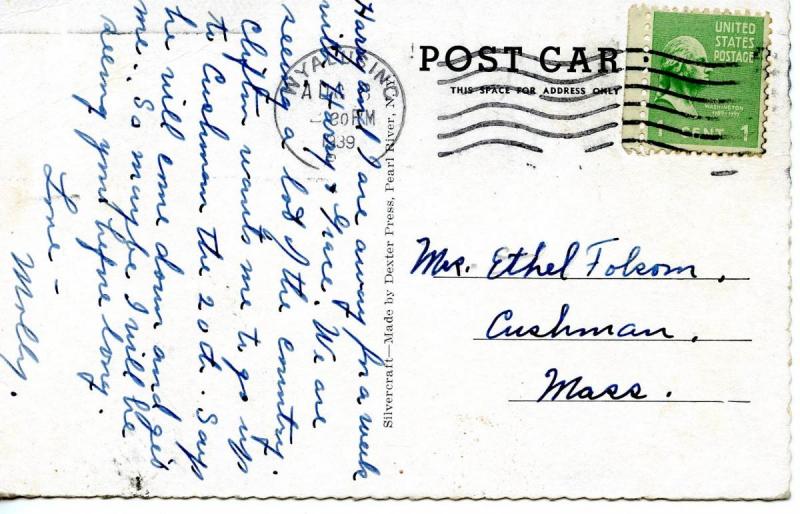 Harry and I are away for a week
with Harry & Grace. We are
seeing a lot of the country.
Clifton wants me to go up
to Cushman the 20th. Says
he will come down and get
me. So maybe I will be
seeing you before long.
Love –
Molly.
Silvercraft—Made by Dexter Press, Pearl River, N.
WYALUSING
30 PM
1939
POST CAR
THIS SPACE FOR ADDRESS ONLY
UNITED
STATES
POSTAGE
WASHINGTON
1 CENT 1
Mrs. Ethel Folsom,
Cushman,
Mass.